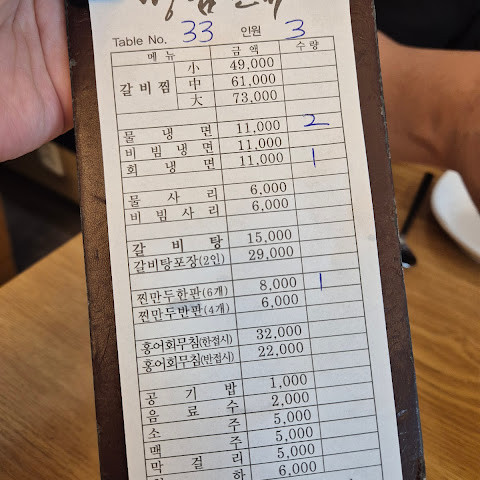 Table No. 33 인원 3
메 뉴 금 액 수 량
갈 비 찜 小 49,000
中 61,000
大 73,000
물 냉 면 11,000 2
비 빔 냉 면 11,000
회 냉 면 11,000 1
물 사 리 6,000
비 빔 사 리 6,000
갈 비 탕 15,000
갈비탕포장(2인) 29,000
찐만두한판(6개) 8,000 1
찐만두반판(4개) 6,000
홍어회무침(한접시) 32,000
홍어회무침(반접시) 22,000
공 기 밥 1,000
음 료 수 2,000
소 주 5,000
맥 주 5,000
막 걸 리 5,000
하 6,000